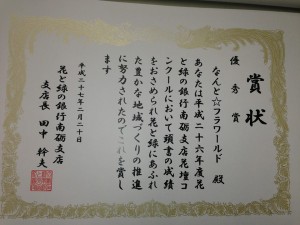 賞状
優秀賞
なんと☆フラワールド 殿
あなたは平成二十六年度花
と緑の銀行南砺支店花壇コ
ンクールにおいて頭書の成績
をおさめられ花と緑にあふれ
た豊かな地域づくりの推進
に努力されたのでこれを賞し
ます
平成二十七年二月二十日
花と緑の銀行南砺支店
支店長 田中幹夫